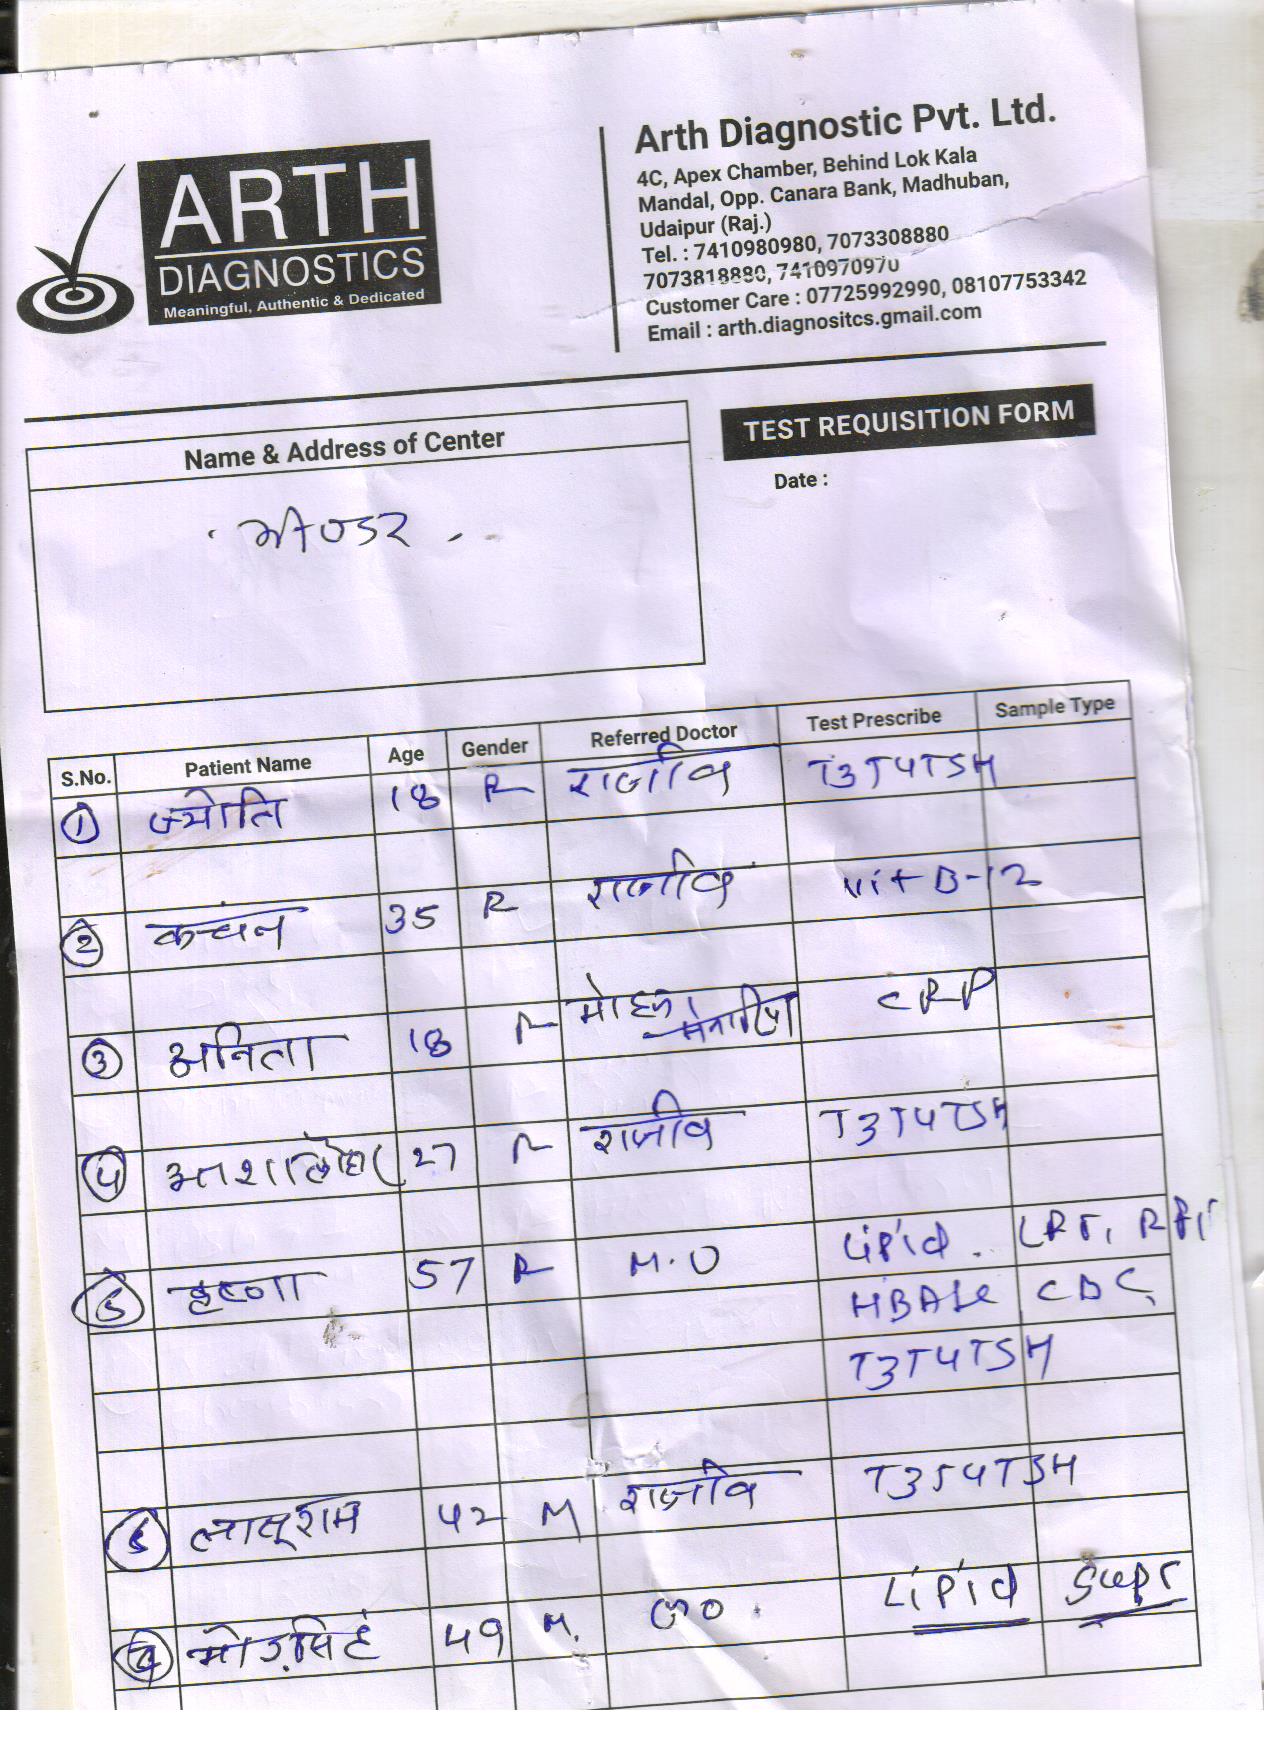 ARTH
DIAGNOSTICS
Meaningful, Authentic & Dedicated
Arth Diagnostic Pvt. Ltd.
4C, Apex Chamber, Behind Lok Kala
Mandal, Opp. Canara Bank, Madhuban,
Udaipur (Raj.)
Tel. : 7410980980, 7073308880
7073818880, 7410970970
Customer Care : 07725992990, 08107753342
Email : arth.diagnositcs.gmail.com
Name & Address of Center
TEST REQUISITION FORM
Date :
भीण्डर
S.No. Patient Name Age Gender Referred Doctor Test Prescribe Sample Type
1 ज्योति 18 F राजीव T3T4TSH
2 कंचन 35 F राजीव Vit B-12
3 अनिता 18 F मोहन CRP
4 आशा 27 F राजीव T3T4TSH
5 57 F M.O Lipid. LFT, RFT
HBA1c CBC
T3T4TSH
6 लालूराम 42 M राजीव T3T4TSH
49 M. Lipid SGPT